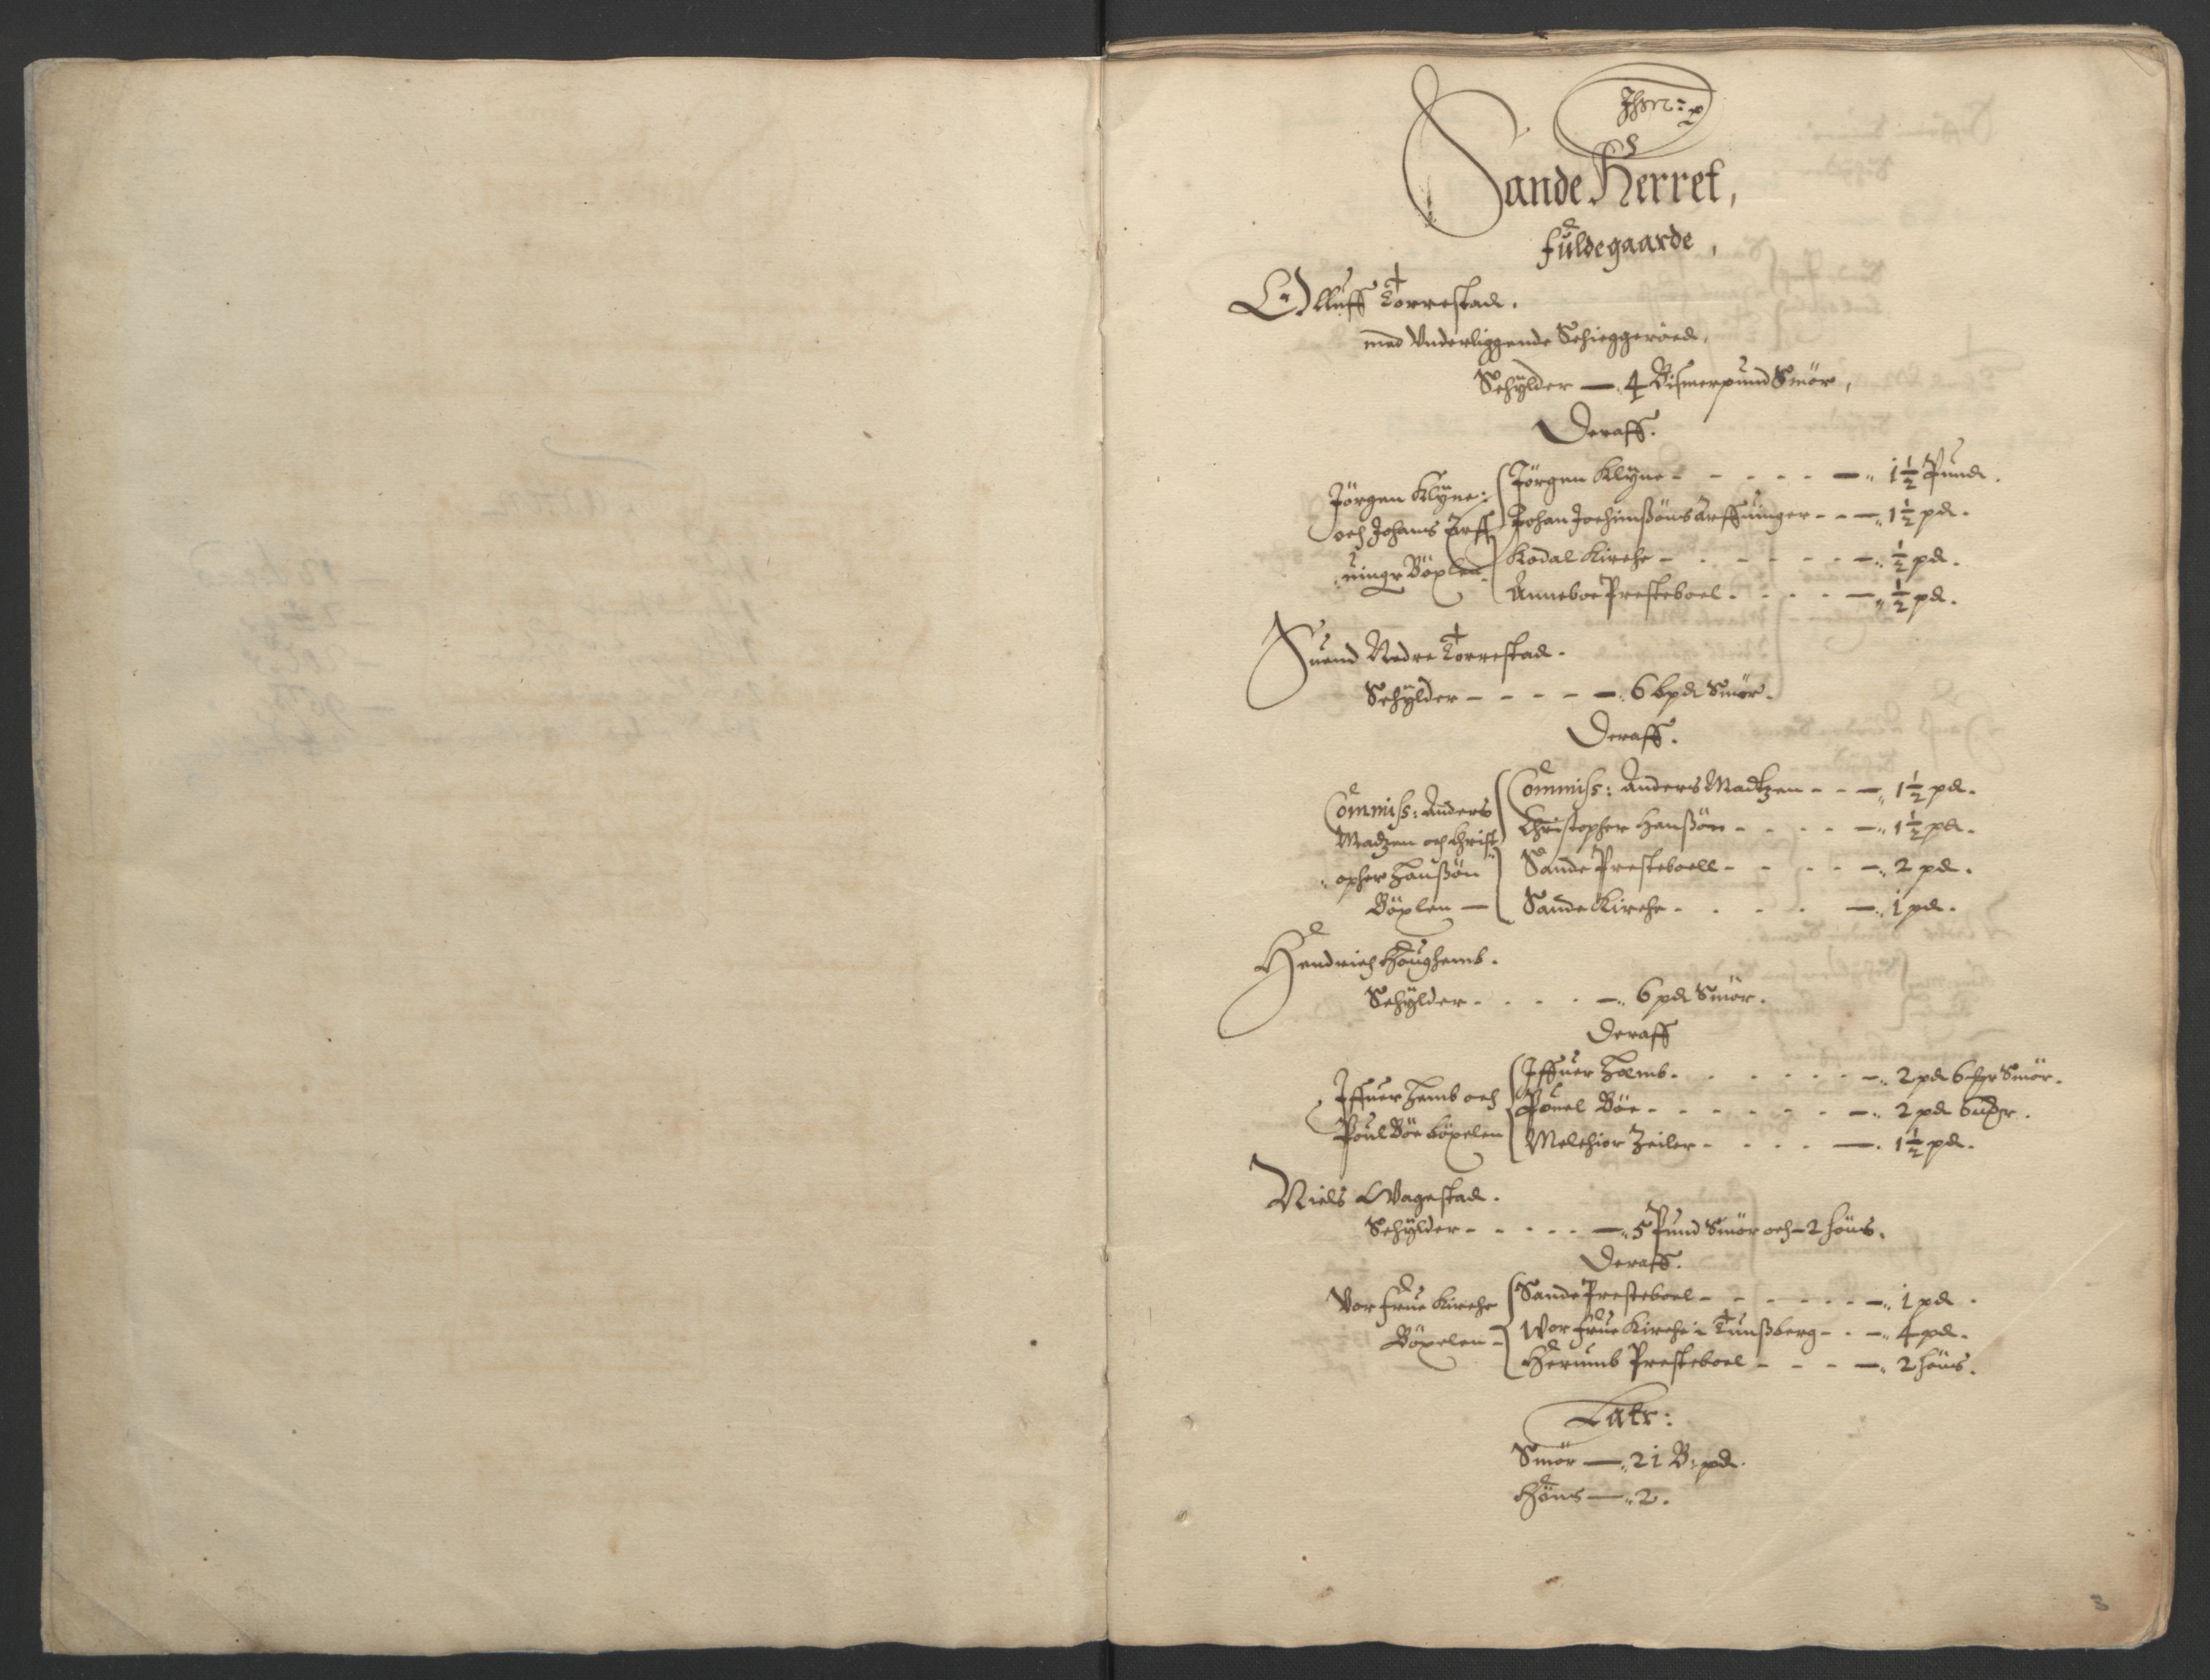 Sande Herret,
fuldegaarde,
Olluff Torrestad.
med Underliggende Schieggeröed,
Schÿlder — 4 Bismerpund Smör,
Deraff.
Jörgen Klÿne:
och Johans Arff
:uingr Böxlen.
Jörgen Klÿne - - - - - —" 1½ Pund.
Johan Jochimßöns Arffuinger - - —" 1½ pd.
Kodal Kirche - - - - - - —" ½ pd.
Anneboe Presteboel. - - - —" ½ pd.
Suend Nedre Torrestad.
Schÿlder - - - - —. 6 bpd Smör.
Deraff.
Commiss: Anders
Madzen och Christ
:opher Hanßön
Böxlen —
Commiss: Anders Madtzen - - —" 1½ pd.
Christopher Hanßön - - - - —" 1½ pd.
Sande Presteboell - - - - —" 2 pd.
Sande Kirche - - - - —" 1 pd.
Hendrich Haughemb.
Schÿlder - - - - —" 6 pd Smör.
Deraff
Iffuer Hemb och
Poul Böe böxelen
Iffuer Hemb. - - - - - - —" 2 pd 6 Smör.
Pouel Böe - - - - - - —" 2 pd 6
Melchior Zeiler - - - - —. 1½ pd.
Niels Wagestad.
Schÿlder - - - - - —" 5 Pund Smör och - 2 höns.
Deraff.
Vor frue Kirche
Böxelen -
Sande Presteboel - - - - - - —" 1 pd.
Wor frue Kirche i Tunßberg - - —" 4 pd.
Herumb Presteboel - - - —" 2 höns.
Latr:
Smör —" 21 B: pd.
Höns —" 2.
3